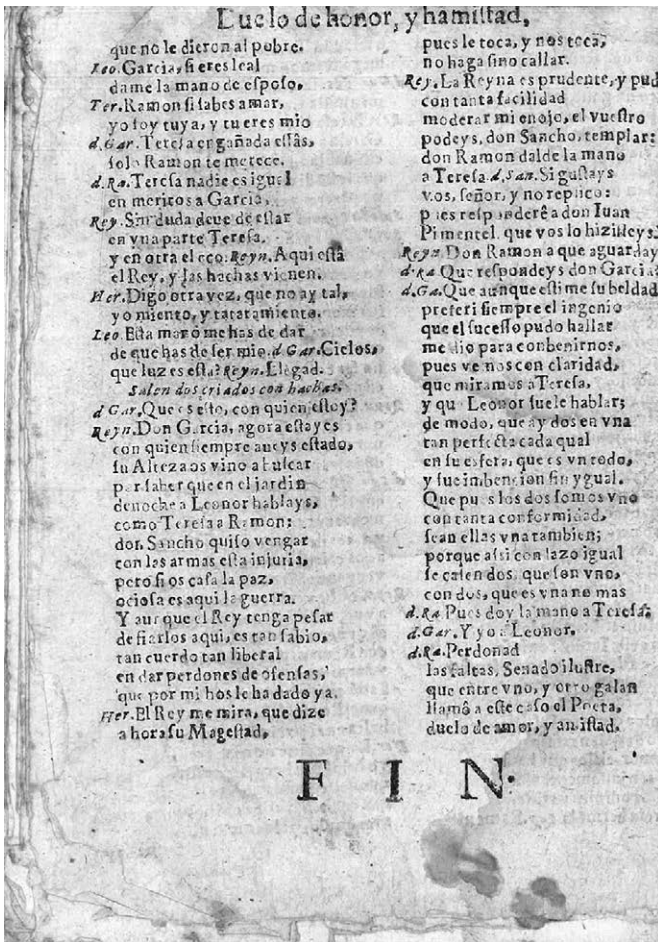 Duelo de honor, y hamistad,
que no le dieron al pobre.
Leo. Garcia, si eres leal
dame la mano de esposo,
Ter. Ramon si sabes amar,
yo soy tuya, y tu eres mio
d. Gar. Teresa engañada estâs,
solo Ramon te merece.
d. Ra. Teresa nadie es igual
en meritos a Garcia,
Rey. Sin duda deue de estar
en vna parte Teresa.
y en otra el eco. Reyn. Aqui està
el Rey, y las hachas vienen.
Her. Digo otra vez, que no ay tal,
yo miento, y tataratamiento.
Leo. Esta mano me has de dar
de que has de ser mio. d. Gar. Cielos,
que luz es esta? Reyn. Llegad.
Salen dos criados con hachas.
d Gar. Que es esto, con quien estoy?
Reyn. Don Garcia, agora estays
con quien siempre aueys estado,
su Alteza os vino a buscar
por saber que en el jardin
de noche a Leonor hablays,
como Teresa a Ramon:
don Sancho quiso vengar
con las armas esta injuria,
pero si os casa la paz,
ociosa es aqui la guerra.
Y aunque el Rey tenga pesar
de fiarlos aqui, es tan sabio,
tan cuerdo tan liberal
en dar perdones de ofensas,
que por mi hos le ha dado ya.
Her. El Rey me mira, que dize
ahora su Magestad,
pues le toca, y nos toca,
no haga sino callar.
Rey. La Reyna es prudente, y pud
con tanta facilidad
moderar mi enojo, el vuestro
podeys, don Sancho, templar:
don Ramon dalde la mano
a Teresa. d. San. Si gustays
vos, señor, yo no replico:
pues responderê a don Iuan
Pimentel, que vos lo hizisteys.
Reyn. Don Ramon a que aguarday
d. Ra Que respondeys don Garcia?
d. Ga. Que aunque estime su beldad
preferi siempre el ingenio
que el sucesso pudo hallar
medio para conbenirnos,
pues vemos con claridad,
que miramos a Teresa,
y que Leonor suele hablar;
de modo, que ay dos en vna
tan perfecta cada qual
en su esfera, que es vn todo,
y sue inbencion sin ygual.
Que pues los dos somos vno
con tanta conformidad,
sean ellas vna tambien;
porque assi con lazo igual
se casen dos, que son vno,
con dos, que es vna no mas
d. Ra Pues doy la mano a Teresa:
d. Gar. Y yo a Leonor.
d. Ra. Perdonad
las faltas, Senado ilustre,
que entre vno, y otro galan
llamâ a este caso el Poeta,
duelo de amor, y amistad.
FIN.